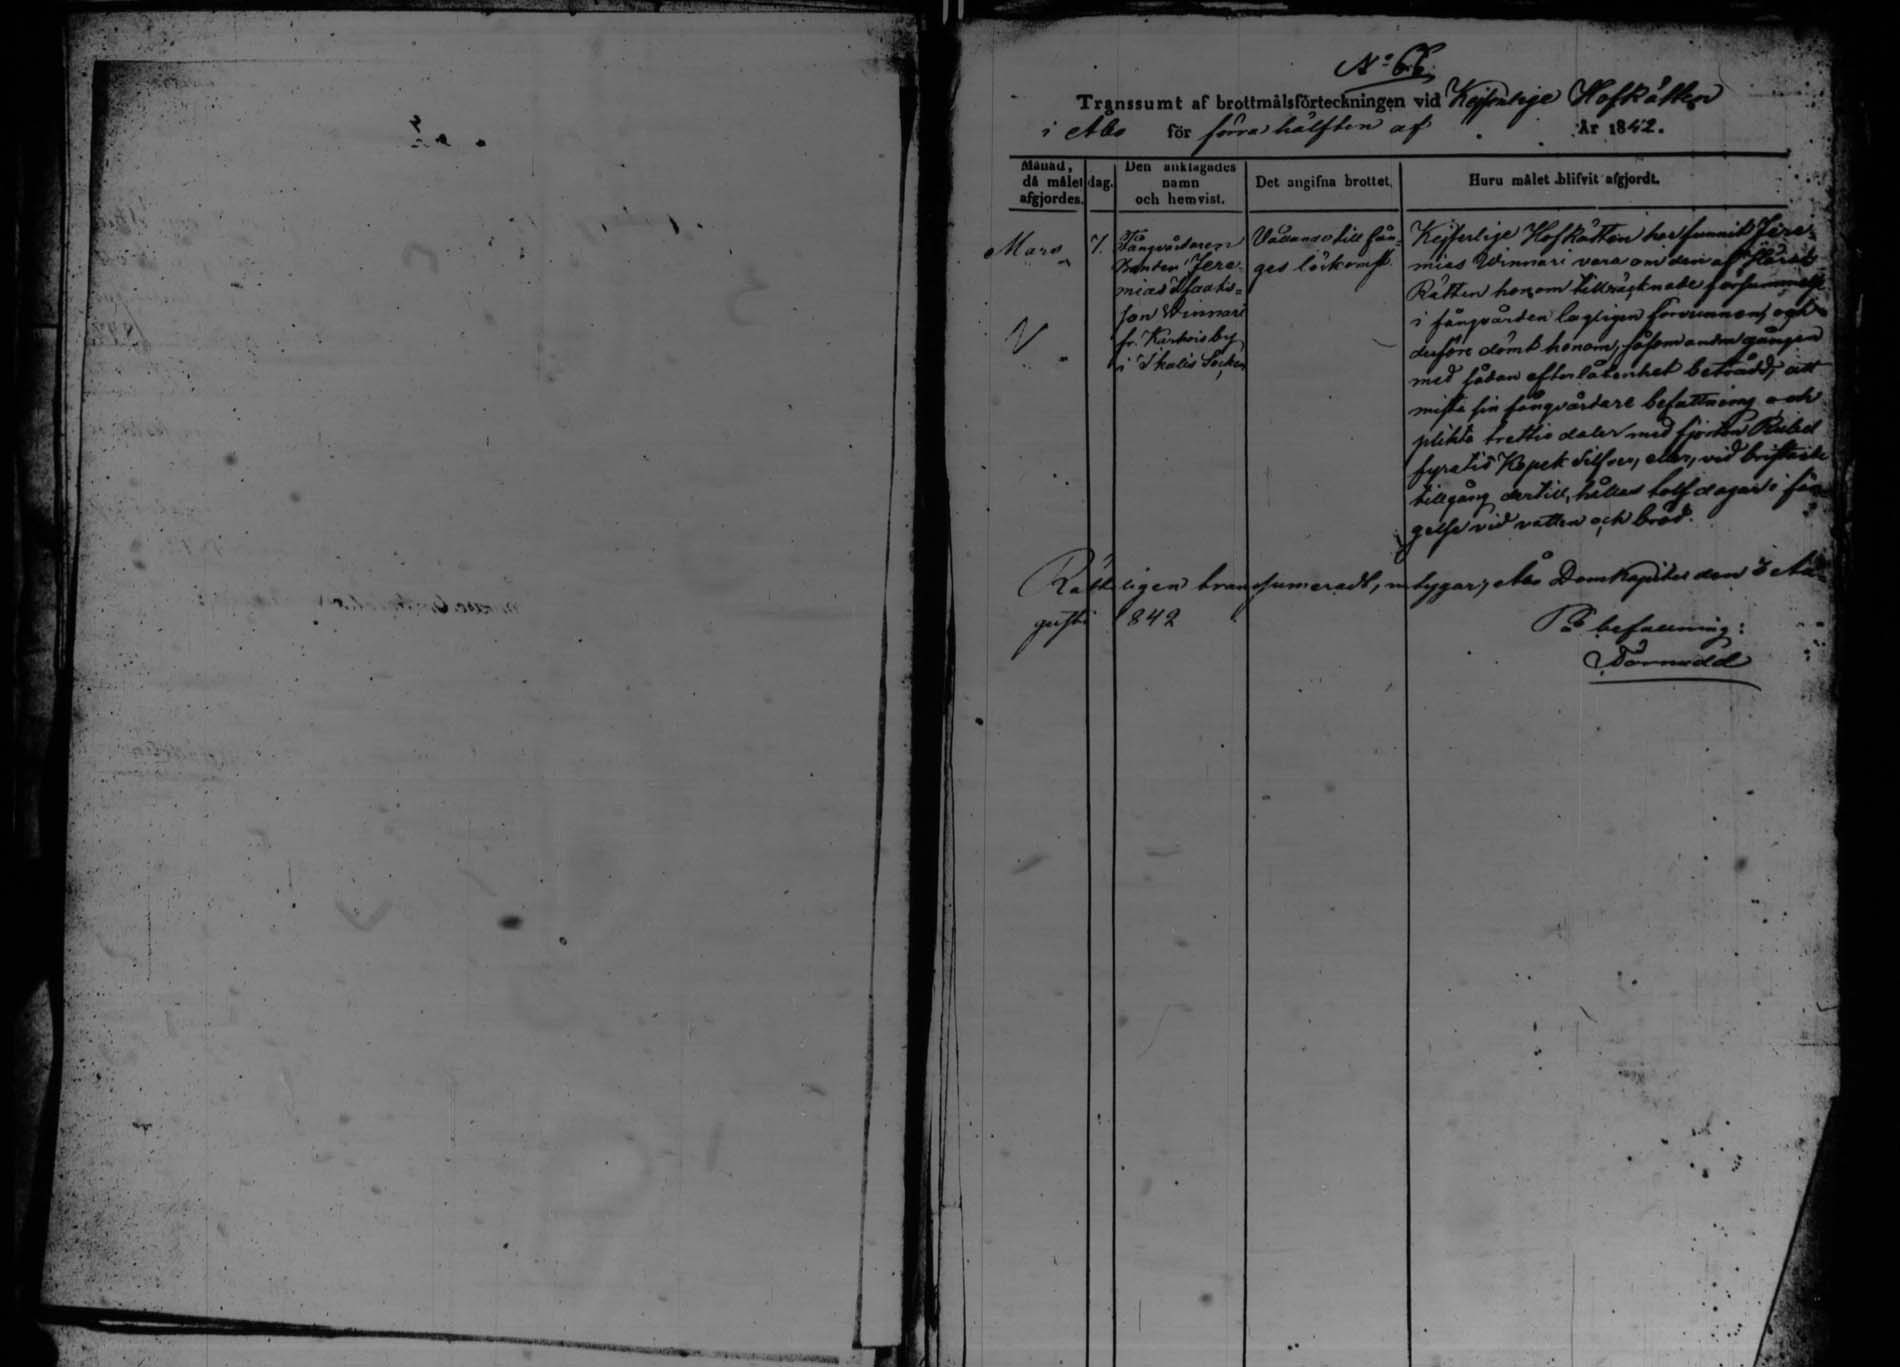 No 66.
Transsumt af brottmålsförteckningen vid Kejserlige Hofrätten
i Åbo för förra hälften af År 1842.
Månad, då målet afgjordes.
dag.
Den anklagades namn och hemvist.
Det angifna brottet.
Huru målet blifvit afgjordt.
Mars
7.
Fångvårdaren
Bonden Jere-
mias Isaaks-
son Winnari
fr. by
i Ikalis Socken
Vållande till fån-
ges löskomst.
Kejserlige Hofrätten har funnit Jere-
mias Winnari vara om den af Härads
Rätten honom tillräknade försummelse
i fångvården lagligen förvunnen, och
derföre dömt honom, såsom andra gången
med sådan efterlåtenhet beträdd, att
mista sin fångvårdare befattning och
plikta trettio daler med fjorton Rubel
fyratio Kopek Silfver, eller, vid bristande
tillgång dertill, hållas tolf dagar i fän-
gelse vid vatten och bröd.
Rätteligen transsumeradt, intygar, Åbo Domkapitel den 3 Au-
gusti 1842
På befallning:
Törnudd